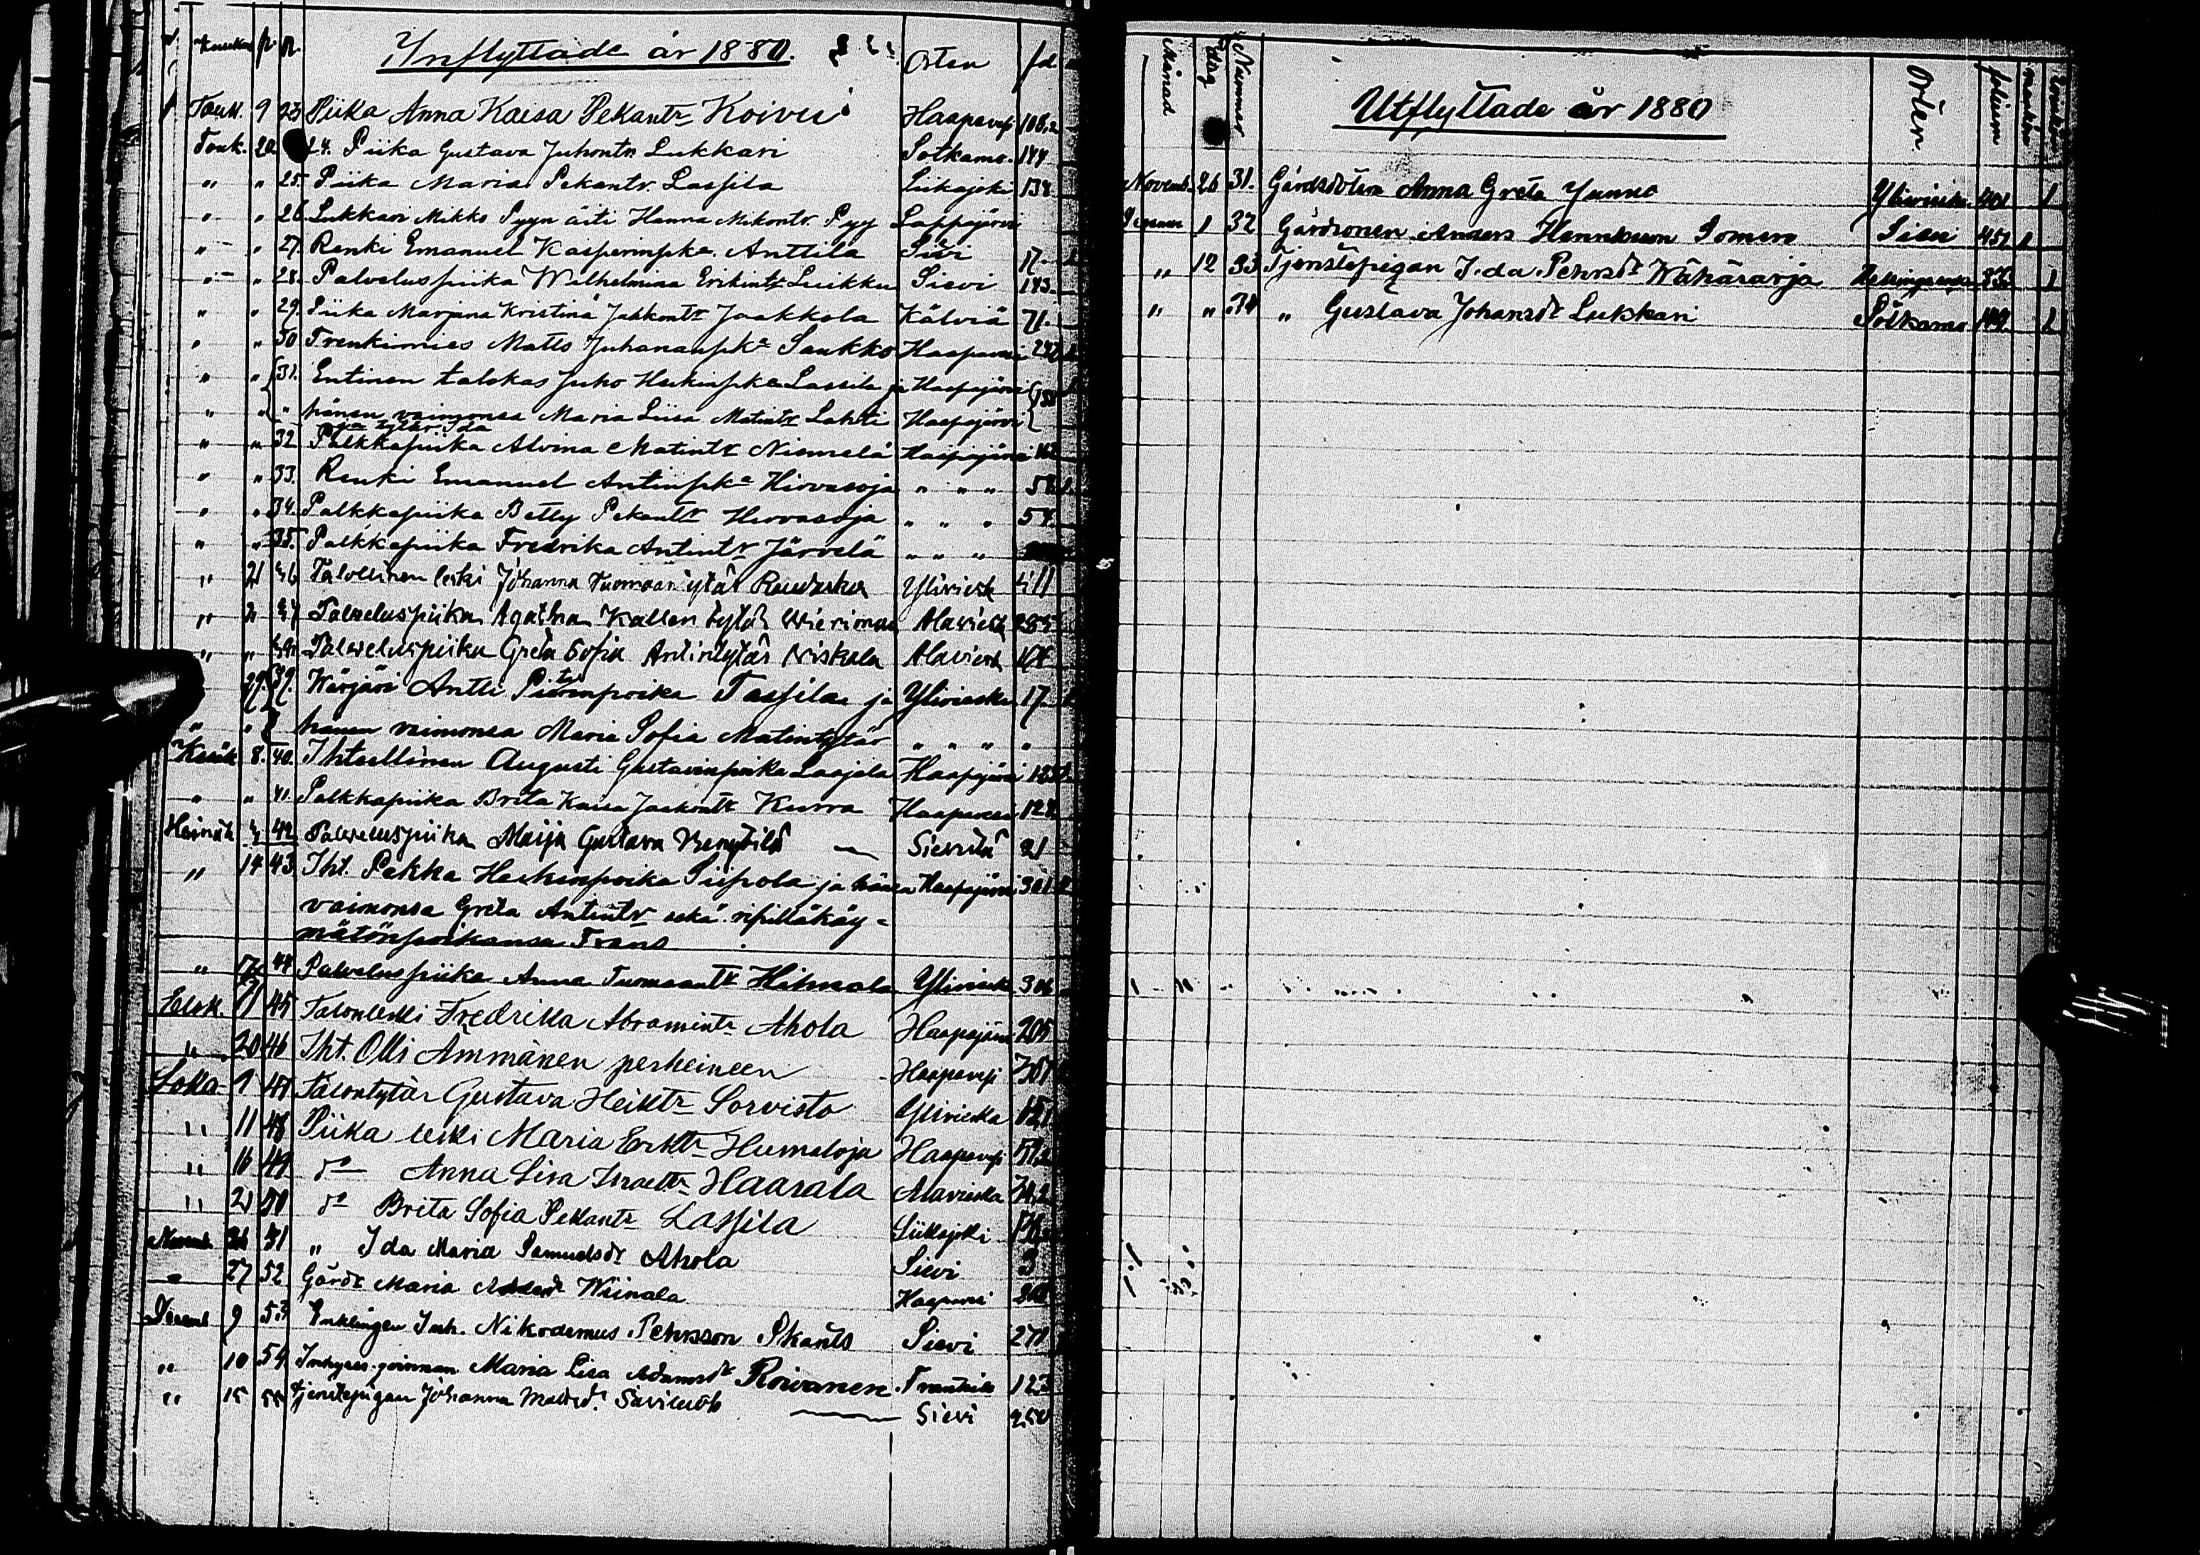 Kuuka p. n. Inflyttade år 1880. Orten fol
Touk. 9 23 Piika Anna Kaisa Pekantr Koivu Haapavesi 108,2
Touk. 20 24. Piika Gustava Juhontr. Lukkari Sotkamo 144
" " 25. Piika Maria Pekantr. Lassila Siikajoki 134
" " 26 Lukkari Mikko Pyyn äiti Hanna Mikontr. Pyy Lappajärvi
" " 27. Renki Emanuel Kasperinpka. Anttila Sievi 17
" " 28. Palveluspiika Wilhelmina Erikintr Luikku Sievi 143
" " 29. Piika Marjana Kristina Jaakontr Jaakkola Kälviä 71.
" " 30 Trenkimies Matts Juhananpka Saukko Haapavesi
" " 31. Entinen talokas Juho Heikinpka Lassila ja Haapajärvi
" " " hänen vaimonsa Maria Liisa Matintr Lahti Haapajärvi
ja tytär Ida
" " 32 Palkkapiika Alvina Matintr Niemelä Haapajärvi 162
" " 33. Renki Emanuel Antinpka Hirvasoja " " "
" " 34. Palkkapiika Betty Pekantr Hirvasoja " " " 54
" " 35. Palkkapiika Fredrika Antintr Järvelä " " "
" 21 36 Talollinen leski Johanna Tuomaan tytär Ylivieska 411
" " 37 Palveluspiika Agatha Kallen tytär Wierimaa Alavieska 285
" " Palveluspiika Greta Sofia Antintytär Niskala Alavieska
29. 39. Kärjäri Antti Pietarinpoika Tassila ja Ylivieska 17
" " hänen vaimonsa Maria Sofia Matintytär " " " "
Kesäk 8. 40. Ihtsellinen Augusti Gustavinpoika Laajala Haapajärvi
" " 41 Palkkapiika Brita Kaisa Jaakontr Kurra Haapavesi
Heinäk 42 Palveluspiika Maija Gustava Sievistä 21
" 14 43 Iht. Pekka Heikinpoika Siipola ja hänen Haapajärvi 301
vaimonsa Greta Antintr sekä ripilläkäy=
mätönpoikansa Frans
" 44 Palveluspiika Anna Tuomaantr Hihnala Ylivieska 306
Elok. 11 45 Talonleski Fredrika Abramintr Ahola Haapajärvi 205
" 20 46 Iht. Olli Ämmänen perheineen Haapavesi 307
Loka 1 47 Talontytär Gustava Heiktr Sorvisto Ylivieska
" 11 48 Piika leski Maria Eriktr Humaloja Haapavesi
" 16 49 do Anna Lisa Israeltr Haarala Alavieska
" 21 50 do Brita Sofia Pekantr Lassila Siikajoki
Novemb. 26 51 " Ida Maria Samuelsdr Ahola Sievi 3
" 27 52 Gårdr Maria Wiinala Haapavesi
Decemb 9 53 Enklingen Inh. Nikodemus Pehrsson Skants Sievi 271
" 10 54 Inhyses qvinnan Maria Lisa Adamsdr Roivanen Frantsila 123
" 15 55 Tjenstepigan Johanna Mattsd. Saviluoto Sievi 250
Månad Dag Nummer Utflyttade år 1880 Orten folium
Novemb. 26 31. Gårdsdottern Anna Greta Junno Ylivieska 401 1
Decemb 1 32 Gårdsonen Anders Henriksson Somero Sievi 451 1
" 12 33 Tjenstepigan Ida Pehrsdr Wähäsarja 1
" " 34 " Gustava Johansdr Lukkari Sotkamo 144 1